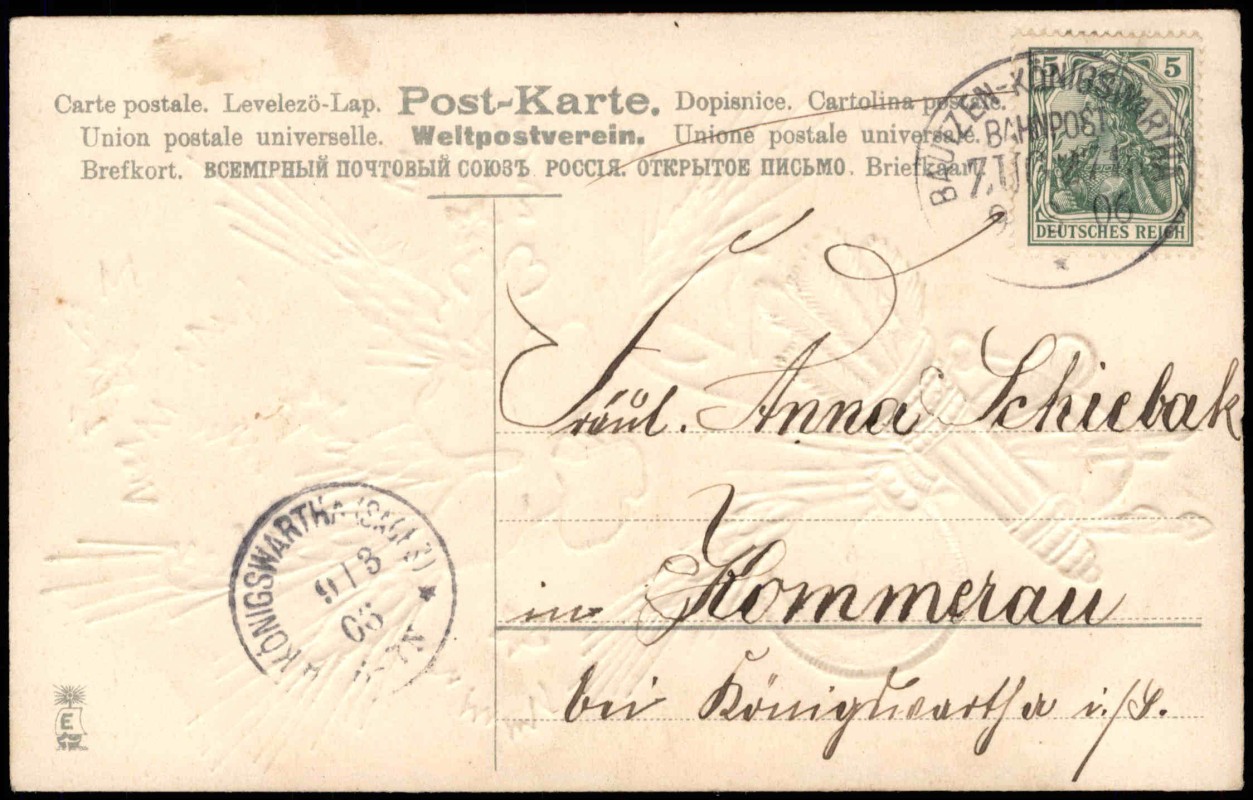 Carte postale. Levelezö-Lap. Post-Karte. Dopisnice. Cartolina postale.
Union postale universelle. Weltpostverein. Unione postale universale.
Brefkort. ВСЕМІРНЫЙ ПОЧТОВЫЙ СОЮЗЪ. РОССІЯ. ОТКРЫТОЕ ПИСЬМО. Briefkaart.
5 5
DEUTSCHES REICH
BAUTZEN-KÖNIGSWARTHA
BAHNPOST
06
Fräul. Anna Schiebak
in Kommerau
bei Königswartha i./S.
KÖNIGSWARTHA (SACHS)
9 / 3
06
E